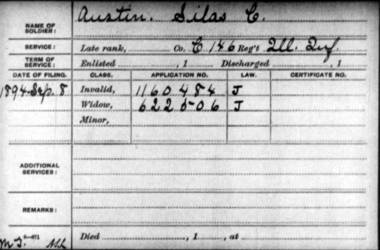 NAME OF SOLDIER: Austin, Silas C.
SERVICE: Late rank, Co. C 146 Reg't Ill. Inf.
TERM OF SERVICE: Enlisted , 1 Discharged , 1
DATE OF FILING. CLASS. APPLICATION NO. LAW. CERTIFICATE NO.
1894 Sep. 8 Invalid, 1160484 J
Widow, 622506 J
Minor,
ADDITIONAL SERVICES:
REMARKS:
Died , 1 , at